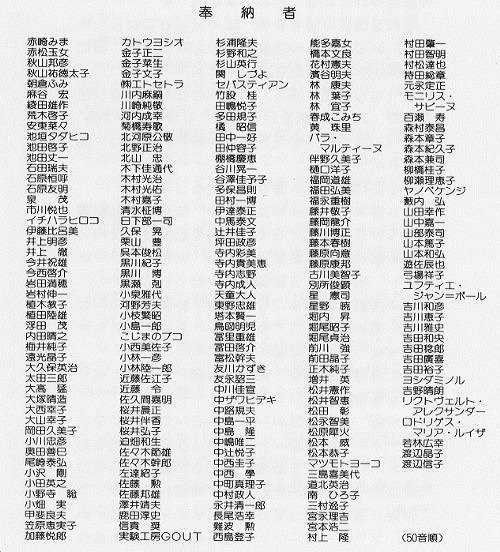 奉納者
赤崎みま
赤松玉女
秋山邦彦
秋山祐徳太子
朝倉ふみ
麻谷 宏
綾田雄作
荒木啓子
安東菜々
池垣タダヒコ
池田啓子
池田丈一
石田瑞夫
石原恒呼
石原友明
泉 茂
市川悦也
イチハラヒロコ
伊藤比呂美
井上明彦
井上 徹
今井祝雄
今西啓介
岩田満穂
岩村伸一
植木敦子
植田陸雄
浮田 茂
内田晴之
梅井純子
遠光晶子
大久保英治
太田三郎
大高 猛
大塚晴造
大西幸子
大山幸子
岡田久美子
小川忠彦
奥田善巳
尾崎泰弘
小沢 剛
小田英之
小野寺 聡
小畑 実
甲斐良夫
笠原恵実子
加藤悦郎
カトウヨシオ
金子正二
金子菜生
金子文子
㈱エトセトラ
川内麻網
川崎純敬
河内成幸
菊橋寿歌
北河原公敬
北野正治
北山 忠
木下佳通代
木村光治
木村光佑
木村嘉子
清水柾博
日下部一司
久保 晃
栗山 豊
呉本俊松
黒川紀子
黒川 博
黒瀬 剋
小泉雅代
河野芳夫
小枝繁昭
小島一郎
こじまのブコ
小西美佐子
小林一彦
小林陸一郎
近藤佐江子
近藤 令
佐久間嘉明
桜井晨正
桜井伴香
桜井弘子
迫畑和生
佐々木節雄
佐々木幹郎
左達昭子
佐藤 勲
佐藤邦雄
澤井靖夫
鹿田淳史
信貴 奨
実験工房GOUT
杉浦隆夫
杉野和之
杉山英行
関 しづよ
セバスティアン
竹股 桂
田嶋悦子
多田規子
橘 昭信
田中一好
田仲容子
棚橋慶恵
谷川晃一
谷澤佳子
多保昌則
田村一博
伊達泰正
中馬泰文
辻井佳子
坪田政彦
寺内彩美
寺内貴美恵
寺内志野
寺内成人
天童大人
東野忠雄
塔本賢一
鳥岡明児
冨里重雄
冨田啓介
富松幹夫
友川かずき
友永詔三
中川佳宣
中ザワヒデキ
中路規夫
中島一平
中島 隆
中嶋唯二
中辻悦子
中西圭子
中西 學
中町真理子
中村政人
永井清一郎
長尾浩幸
難波 勲
西島登子
能多嘉女
橋本文良
花村憲夫
濱谷明夫
林 康夫
林 葉子
林 宜子
春成こみち
黄 珠里
パラ・
マルティーヌ
伴野久美子
樋口洋子
福岡道雄
福田弘美
福永重樹
藤井敬子
藤岡龍介
藤川博正
藤本春樹
藤原向意
藤原慶邦
古川美智子
別所俊顕
星 憲司
星野 暁
堀内 昇
堀尾昭子
堀尾貞治
前川 強
前田晶子
正木純子
増井 英
松井憲作
松井智惠
松田 彰
松永智美
松原犀火
松本 威
松本恭子
マツモトヨーコ
三島喜美代
道北英治
南 ひろ子
三村逸子
宮永理吉
宮本浩二
村上 隆
村田肇一
村田智明
村松達也
持田総章
元永定正
モニリス・
サビーヌ
百瀬 寿
森村泰昌
森本章子
森本紀久子
森本兼司
柳橋桂子
柳瀬理恵子
ヤノベケンジ
薮内 弘
山田幸作
山中嘉一
山部泰司
山本篤子
山本和弘
遊佐辰也
弓場祥子
ユフティエ・
ジャン＝ポール
吉川和彦
吉川恵子
吉川雅史
吉田和央
吉田稔郎
吉田廣喜
吉田裕子
ヨシダミノル
吉野晴朗
リウトヴェルト・
アレクサンダー
ロドリゲス・
マリア・ルイザ
若林広幸
渡辺晶子
渡辺信子
(50音順)